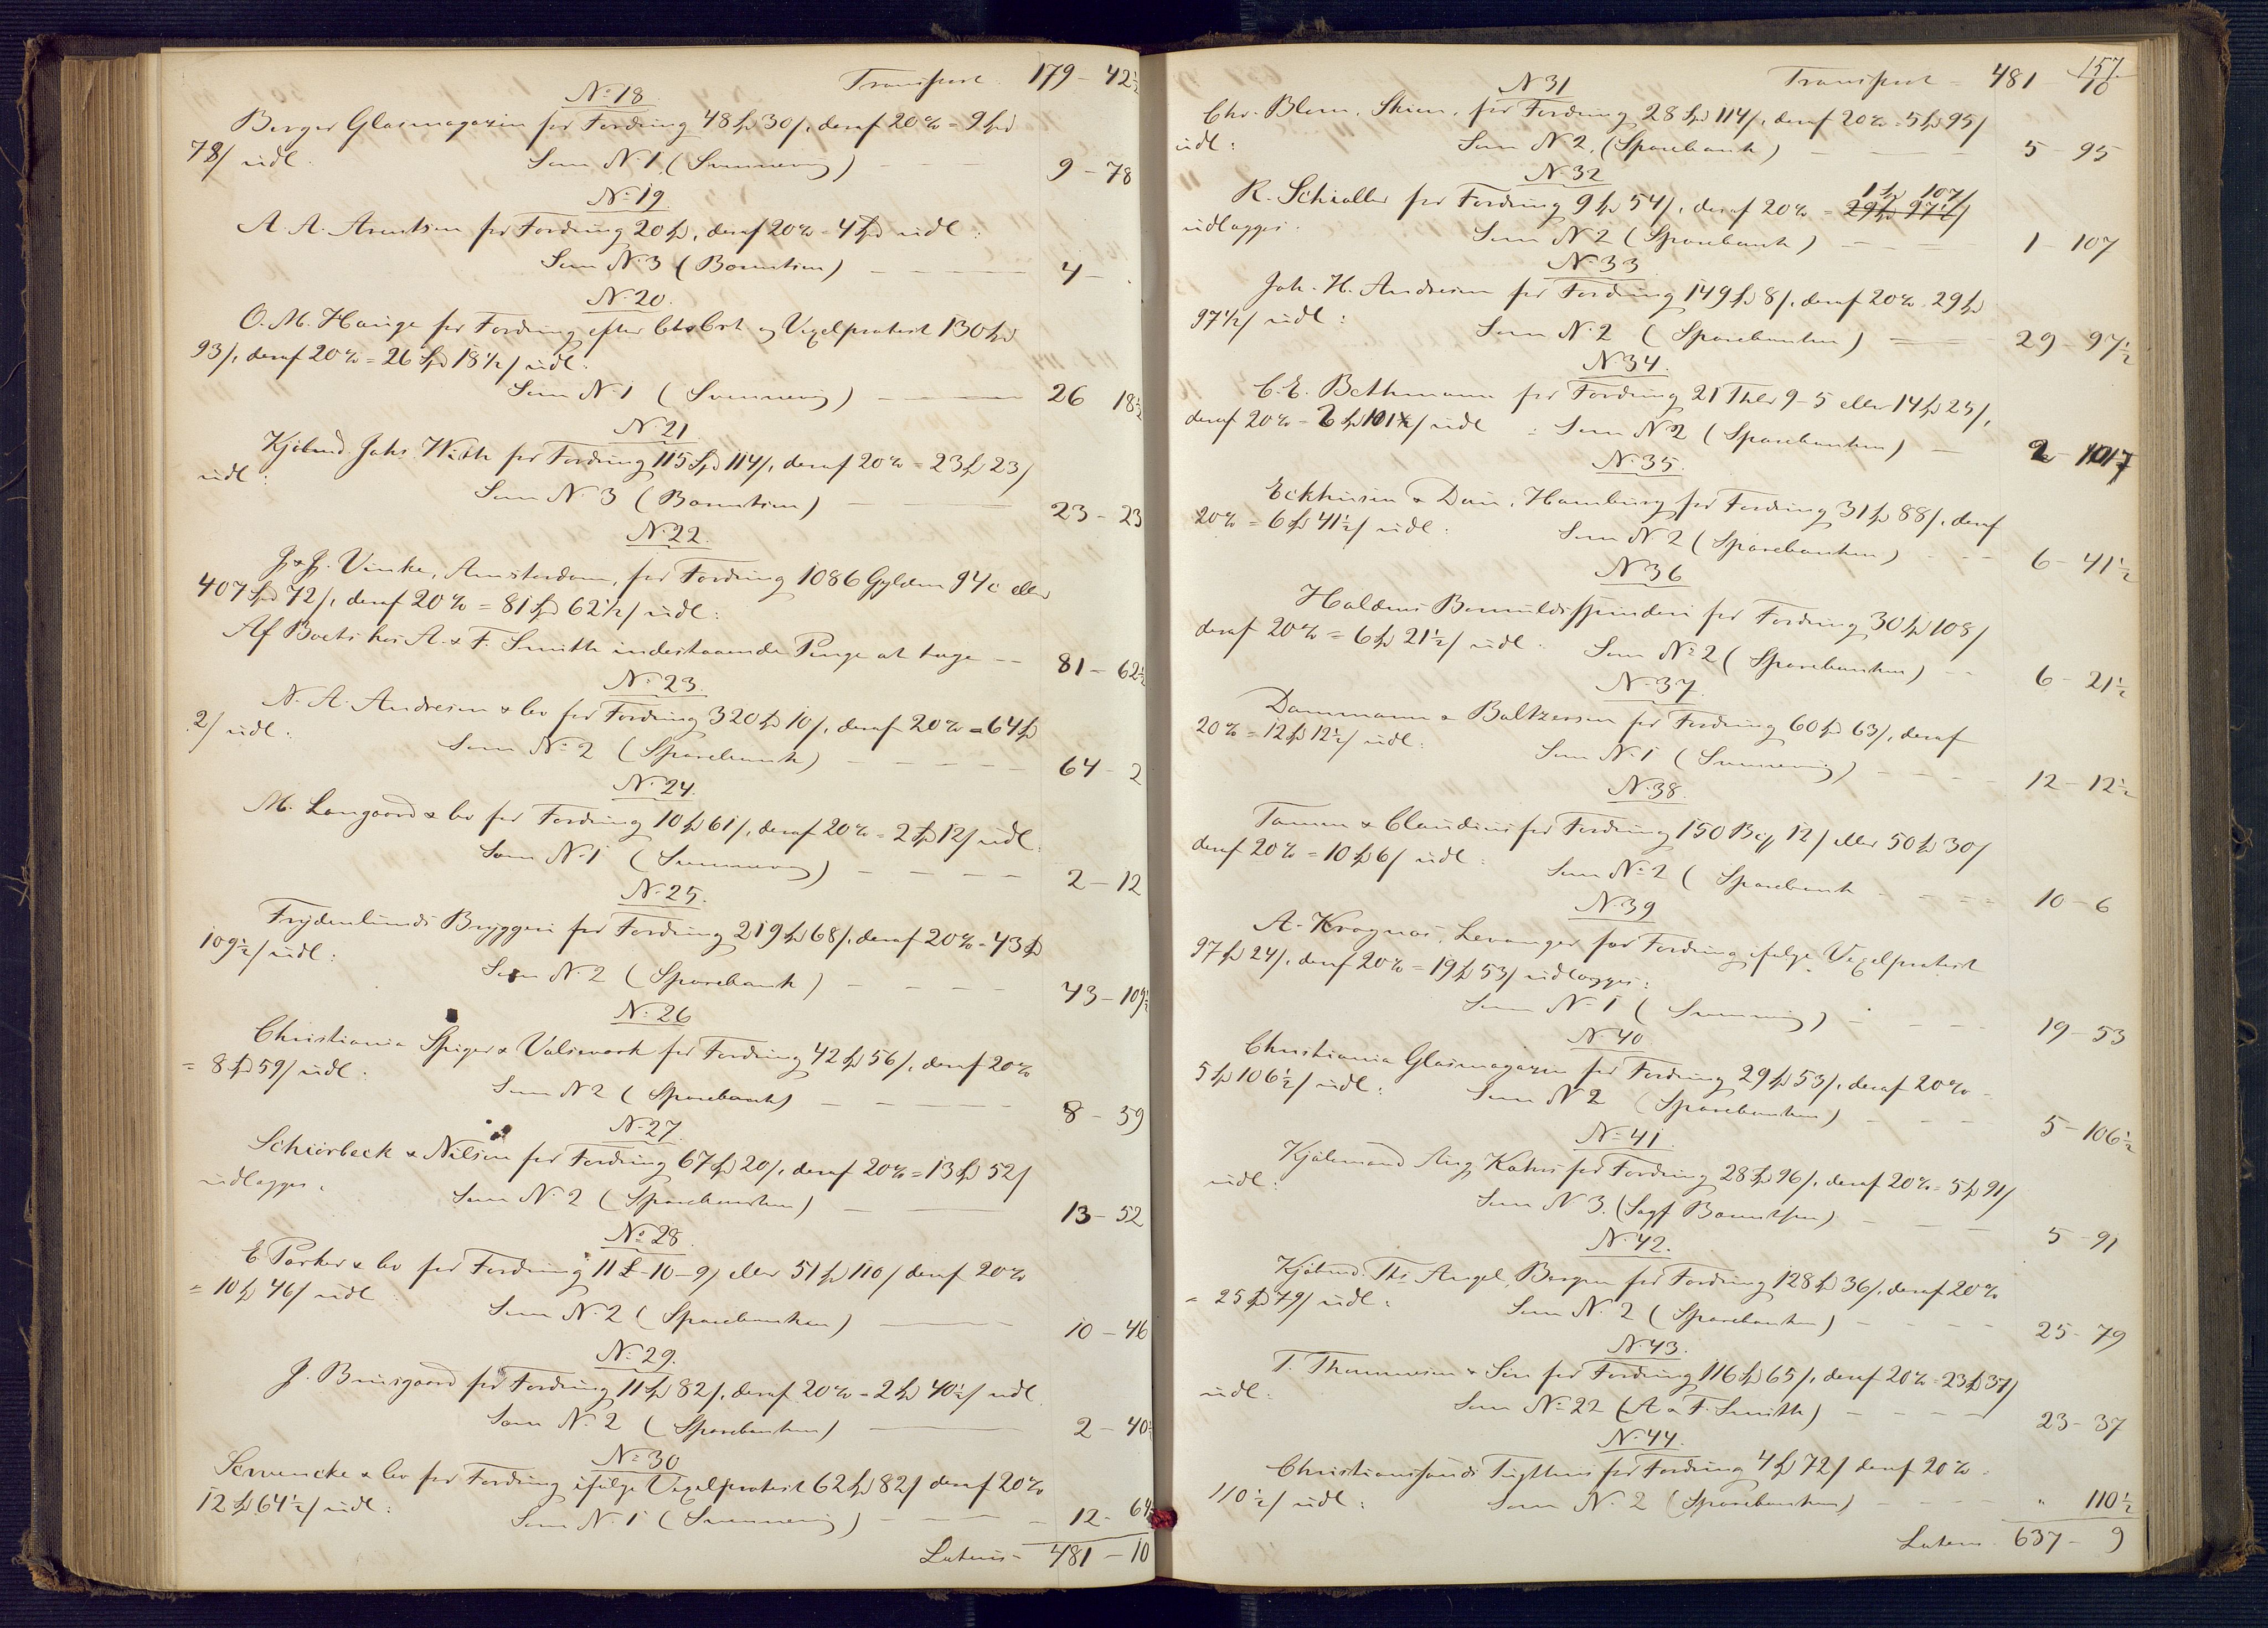 Transport 179 - 42½
No 18.
Berger Glasmagazin for Fordring 48 Spd 30/, deraf 20% = 9 Spd
78/ udl:
Som No 1 (Svennevig) 9 - 78
No 19.
A. A. Arentsen for Fordring 20 Spd, deraf 20% = 4 Spd udl:
Som No 3 (Berentsen) 4 -
No 20.
O. M. Hauge for Fordring efter og Vexelprotest 130 Spd
93/, deraf 20% = 26 Spd 18½/ udl:
Som No 1 (Svennevig) 26 18½
No 21
Kjøbmd. Johs With for Fordring 115 Spd 114/, deraf 20% = 23 Spd 23/
udl:
Som No 3 (Berentsen) 23 - 23
No 22.
J & J. Vinke, Amsterdam, for Fordring 1086 Gylden 94 c eller
407 Spd 72/, deraf 20% = 81 Spd 62½/ udl:
Af Boets hos A. & F. Smith indestaaende Penge at tage 81 - 62½
No 23.
N. A. Andresen & Co for Fordring 320 Spd 10/, deraf 20% = 64 Spd
2/ udl:
Som No 2 (Sparebank) 64 - 2
No 24.
M. Langaard & Co for Fordring 10 Spd 61/, deraf 20% = 2 Spd 12/ udl.
Som No 1 (Svennevig) 2 - 12
No 25.
Frydenlunds Bryggeri for Fordring 219 Spd 68/, deraf 20% = 43 Spd
109½/ udl:
Som No 2 (Sparebank) 43 - 109½
No 26
Christiania Spiger & Valseverk for Fordring 42 Spd 56/, deraf 20%
= 8 Spd 59/ udl:
Som No 2 (Sparebank) 8 - 59
No 27.
Schiørbeck & Nilsen for Fordring 67 Spd 20/, deraf 20% = 13 Spd 52/
udlægges:
Som No 2 (Sparebanken) 13 - 52
No 28.
E. Parker & Co for Fordring 11 £ - 10 - 9/ eller 51 Spd 110/ deraf 20%
= 10 Spd 46/ udl
Som No 2 (Sparebanken) 10 - 46
No 29.
J. Bruusgaard for Fordring 11 Spd 82/, deraf 20% = 2 Spd 40½/ udl
Som No 2 (Sparebanken) 2 - 40½
No 30
Schwencke & Co for Fordring ifølge Vexelprotest 62 Spd 82/ deraf 20%
12 Spd 64½/ udl:
Som No 1 (Svennevig) 12 - 64½
Lateris - 481 - 10
157
N 31 Transport - 481 - 10
Chr. Blom, Skien, for Fordring 28 Spd 114/, deraf 20% = 5 Spd 95/
udl:
Som No 2, (Sparebank) 5 - 95
No 32
1 Spd 107/
R. Schiøller for Fordring 9 Spd 54/, deraf 20% = 29 Spd 97½/
udlægges:
Som No 2 (Sparebank) 1 - 107
No 33
Joh. H. Andresen for Fordring 149 Spd 8/, deraf 20% = 29 Spd
97½/ udl:
Som No 2 (Sparebanken) 29 - 97½
No 34.
C. E. Bethmann for Fordring 21 Thlr 9-5 eller 14 Spd 25/,
deraf 20% = 2 Spd 101/ udl: Som No 2 (Sparebanken) 2 - 101
No 35.
Eckhusen & Dau, Hamburg for Fordring 31 Spd 88/, deraf
20% = 6 Spd 41½/ udl:
Som No 2 (Sparebanken) 6 - 41½
No 36
Haldens Bomuldsspinderi for Fordring 30 Spd 108/
deraf 20% = 6 Spd 21½/ udl: Som No 2 (Sparebanken) 6 - 21½
No 37.
Dammann & Baltzersen for Fordring 60 Spd 63/, deraf
20% = 12 Spd 12½/ udl:
Som No 1 (Svennevig) 12 - 12½
No 38.
Tamm & Claudius for Fordring 150 12/ eller 50 Spd 30/
deraf 20% = 10 Spd 6/ udl:
Som No 2 (Sparebank 10 - 6
No 39
A. Kragnæs, Levanger for Fordring ifølge Vexelprotest
97 Spd 24/, deraf 20% = 19 Spd 53/ udlægges:
Som No 1 (Svennevig) 19 - 53
No 40
Christiania Glasmagazin for Fordring 29 Spd 53/, deraf 20% =
5 Spd 106½/ udl:
Som No 2 (Sparebanken) 5 - 106½
No 41.
Kjøbmand Aug Kahrs for Fordring 28 Spd 96/, deraf 20% = 5 Spd 91/
udl:
Som No 3. (Sagf Berentsen) 5 - 91
No 42.
Kjøbmd. Ths Angel, Bergen for Fordring 128 Spd 36/, deraf 20%
= 25 Spd 79/ udl:
Som No 2 (Sparebanken) 25 - 79
No 43.
T. Thommesen & Søn for Fordring 116 Spd 65/, deraf 20% = 23 Spd 37/
udl:
Som No 22 (A & F. Smith) 23 - 37
No 44.
Christianssands Tugthus for Fordring 4 Spd 72/ deraf 20% =
110½/ udl:
Som No 2 (Sparebanken) " 110½
Lateris 637 - 9